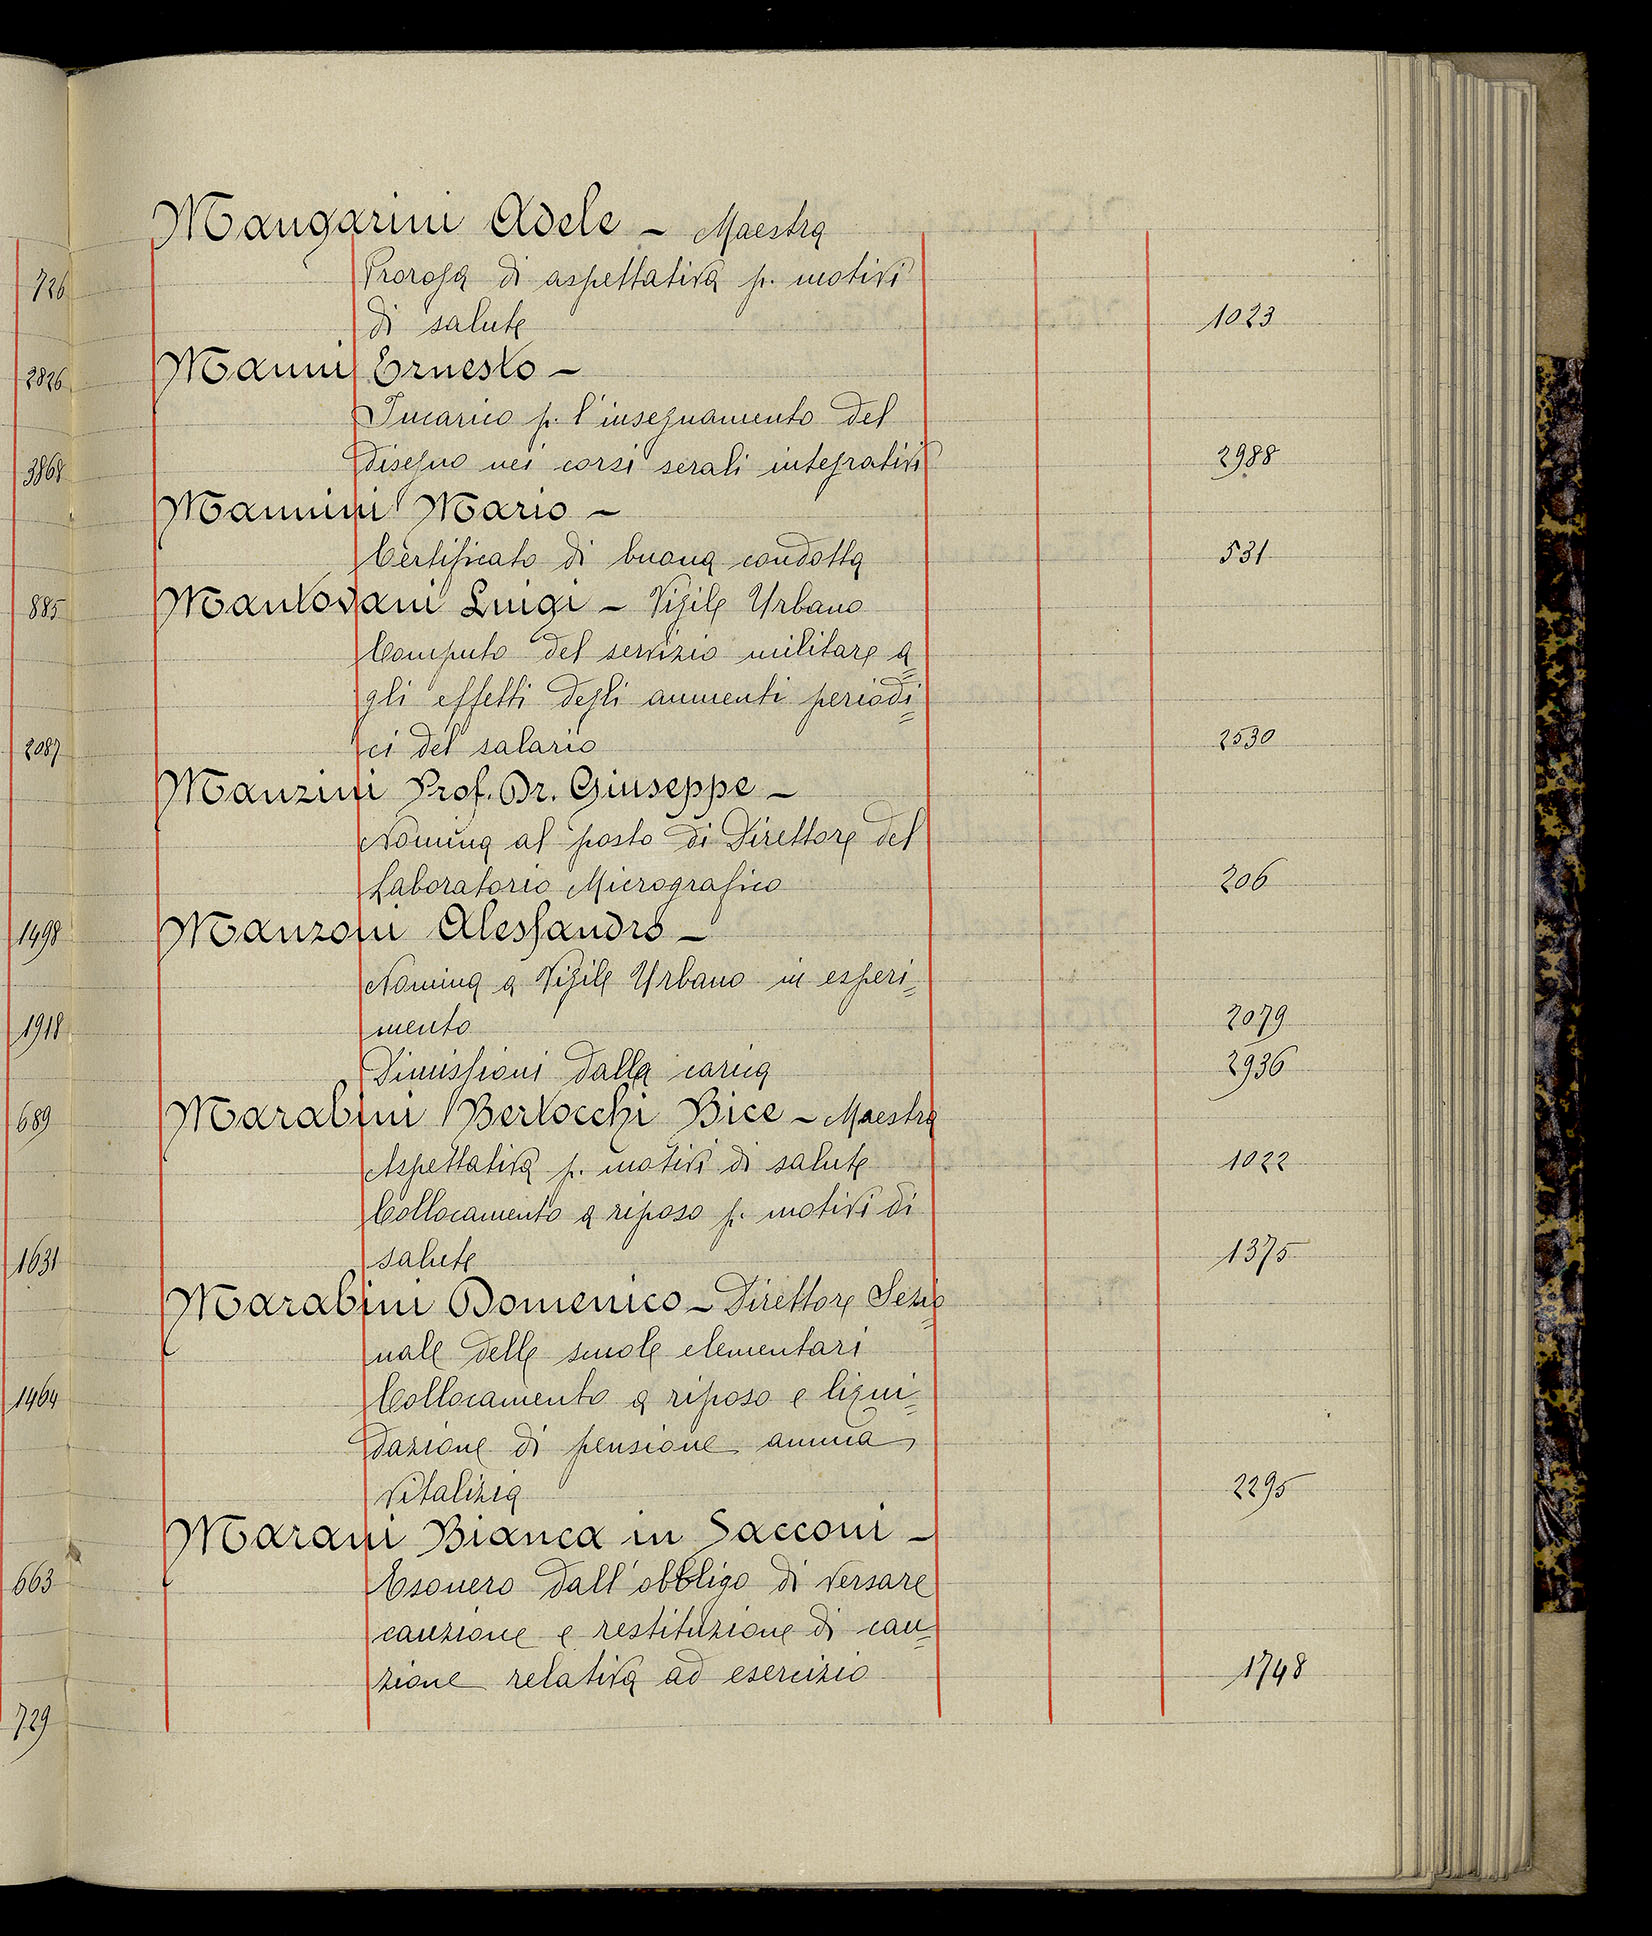 Mangarini Adele – Maestra
726
Proroga di aspettativa p. motivi
di salute 1023
2826
Manni Ernesto –
Incarico p. l'insegnamento del
3868
disegno nei corsi serali integrativi 2988
Mannini Mario –
Certificato di buona condotta 531
885
Mantovani Luigi – Vigile Urbano
Computo del servizio militare a=
gli effetti degli aumenti periodi=
2087
ci del salario 2530
Manzini Prof. Dr. Giuseppe –
Nomina al posto di Direttore del
Laboratorio Micrografico 206
1498
Manzoni Alessandro –
Nomina a Vigile Urbano in esperi=
1918
mento 2079
Dimissioni dalla carica 2936
689
Marabini Bertocchi Bice – Maestra
Aspettativa p. motivi di salute 1022
Collocamento a riposo p. motivi di
1631
salute 1375
Marabini Domenico – Direttore Sezio=
nale delle scuole elementari
1464
Collocamento a riposo e liqui=
dazione di pensione annua
vitalizia 2295
Marani Bianca in Sacconi –
663
Esonero dall'obbligo di versare
cauzione e restituzione di cau=
zione relativa ad esercizio 1748
729